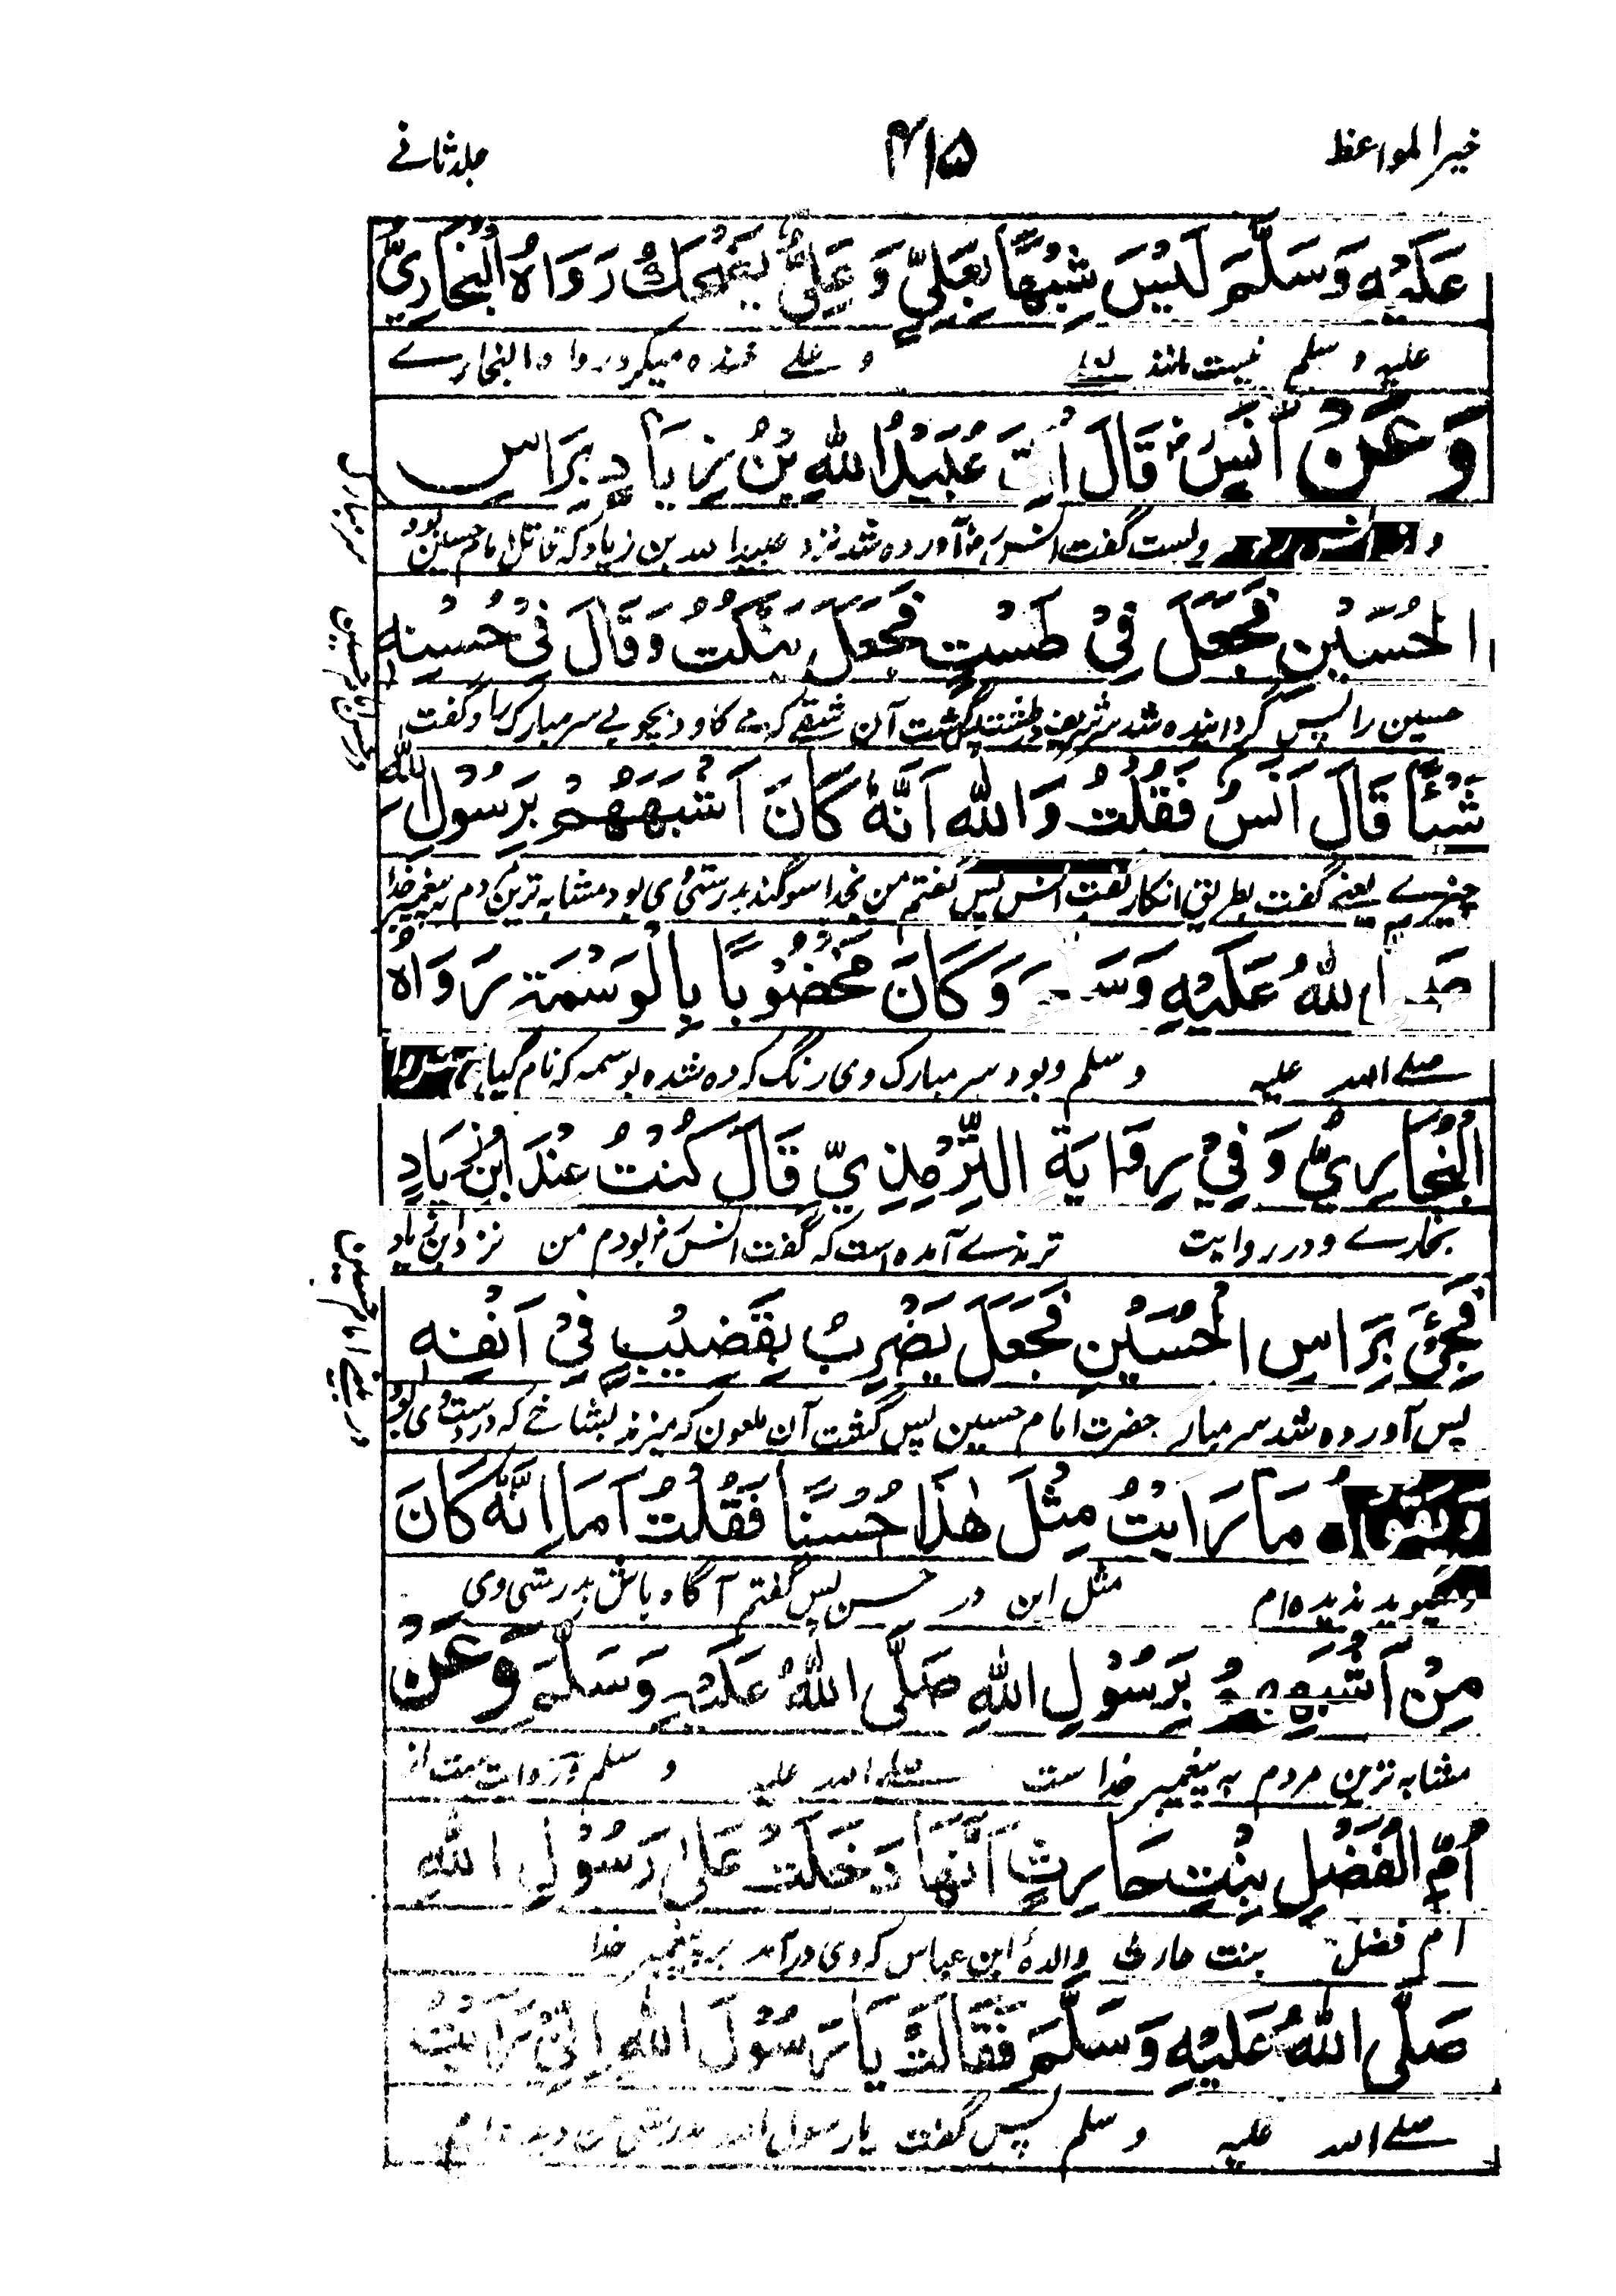 خیر المواعظ
۴۱۵
جلد ثانے
عَلَيْهِ وَسَلَّمَ لَيْسَ شِبْهًا بِعَلِيٍّ وَعَلِيٌّ يَضْحَكُ رَوَاهُ الْبُخَارِيُّ
علیہ و سلم نیست مانند و علے خندہ میکرد رواہ البخارے
وَعَنْ اَنَسٍ رض قَالَ اُتِيَ عُبَيْدُ اللهِ بْنُ زِيَادٍ بِرَاْسِ
و ولیست گفت انس رض آوردہ شد نزد عبید اللہ بن زیاد کہ قاتل امام حسین بود
الْحُسَيْنِ فَجُعِلَ فِيْ طَسْتٍ فَجَعَلَ يَنْكُتُ وَقَالَ فِيْ حُسْنِهٖ
حسین را پس گردانیدہ شد سر شریف در طشت پس گشت آن شقے کہ مے کاود بچوبے سر مبارک را و گفت
شَيْئًا قَالَ اَنَسٌ فَقُلْتُ وَاللهِ اَنَّهٗ كَانَ اَشْبَهَهُمْ بِرَسُوْلِ اللهِ
چیزے یعنے گفت بطریق انکار گفت انس پس گفتم من بخدا سوگند بدرستی وی بود مشابہ ترین مردم بہ پیغمبر خدا
صَلَّى اللهُ عَلَيْهِ وَسَلَّمَ وَكَانَ مَخْضُوْبًا بِالْوَسْمَةِ رَوَاهُ
صلے اللہ علیہ و سلم و بود سر مبارک وی رنگ کردہ شدہ بوسمہ کہ نام گیاہ
الْبُخَارِيُّ وَفِيْ رِوَايَةِ التِّرْمِذِيِّ قَالَ كُنْتُ عِنْدَ ابْنِ زِيَادٍ
بخارے و در روایت ترمذے آمدہ است کہ گفت انس رض بودم من نزد ابن زیاد
فَجِئَ بِرَاْسِ الْحُسَيْنِ فَجَعَلَ يَضْرِبُ بِقَضِيْبٍ فِيْ اَنْفِهٖ
پس آوردہ شد سر مبارک حضرت امام حسین پس گشت آن ملعون کہ میزند بشاخے کہ در دست وی بود
وَيَقُوْلُ مَا رَاَيْتُ مِثْلَ هٰذَا حُسْنًا فَقُلْتُ اَمَا اِنَّهٗ كَانَ
و میگوید ندیدہ ام مثل این در حسن پس گفتم آگاہ باش بدرستی وی
مِنْ اَشْبَهِهِمْ بِرَسُوْلِ اللهِ صَلَّى اللهُ عَلَيْهِ وَسَلَّمَ وَعَنْ
مشابہ ترین مردم بہ پیغمبر خدا ست صلے اللہ علیہ و سلم و روایت ست از
اُمِّ الْفَضْلِ بِنْتِ حَارِثٍ اَنَّهَا دَخَلَتْ عَلٰى رَسُوْلِ اللهِ
ام فضل بنت حارث والدۂ ابن عباس کہ وی درآمد بر پیغمبر خدا
صَلَّى اللهُ عَلَيْهِ وَسَلَّمَ فَقَالَتْ يَا رَسُوْلَ اللهِ اِنِّيْ رَاَيْتُ
صلے اللہ علیہ و سلم پس گفت یا رسول اللہ بدرستی من دیدہ ام